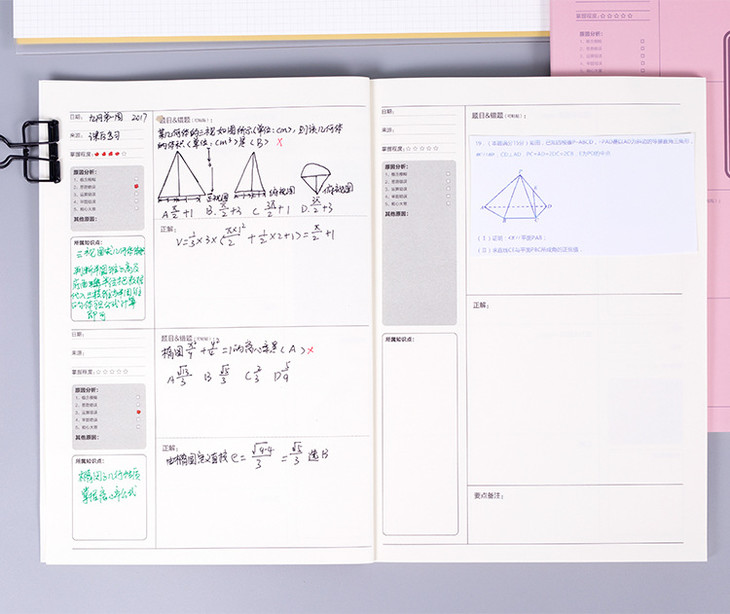 日期: 九月第一周 2017
来源: 课后练习
掌握程度:
原因分析:
1、概念模糊
2、思路错误
3、运算错误
4、审题错误
5、粗心大意
其他原因:
所属知识点:
三视图
题目&错题(可粘贴)
某几何体的三视图如图所示(单位:cm), 则该几何体
的体积(单位:cm³)是(B) ×
正视图
侧视图
俯视图
A. π/2+1 B. π/2+3 C. 3π/2+1 D. 3π/2+3
正解:
V=1/3×3×(π×1²/2+1/2×2×1)=π/2+1
日期:
来源:
掌握程度:
原因分析:
1、概念模糊
2、思路错误
3、运算错误
4、审题错误
5、粗心大意
其他原因:
所属知识点:
椭圆的几何性质
掌握离心率公式
题目&错题(可粘贴)
椭圆x²/9+y²/4=1的离心率是(A)×
A √13/3 B √5/3 C 2/3 D 5/9
正解:
由椭圆定义直接e=√9-4/3=√5/3 选B
日期:
来源:
掌握程度:
原因分析:
1、概念模糊
2、思路错误
3、运算错误
4、审题错误
5、粗心大意
其他原因:
所属知识点:
题目&错题(可粘贴)
19.(本题满分15分)如图,已知四棱锥P-ABCD,△PAD是以AD为斜边的等腰直角三角形,
CD⊥AD,PC=AD=2DC=2CB,E为PD的中点
P
E
A
D
B
C
(Ⅰ)证明:CE∥平面PAB;
(Ⅱ)求直线CE与平面PBC所成角的正弦值
正解:
要点备注:
掌握程度:
原因分析:
1、概念模糊
2、思路错误
3、运算错误
4、审题错误
5、粗心大意
其他原因: